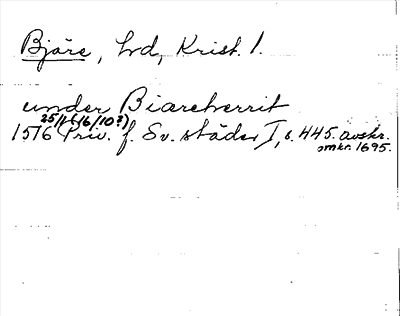 Bjäre, hd, Krist. l.
under Biareherrit
25/1 (16/10?)
1516 Priv. f. Sv. städer I, s. 445. avskr.
omkr. 1695.